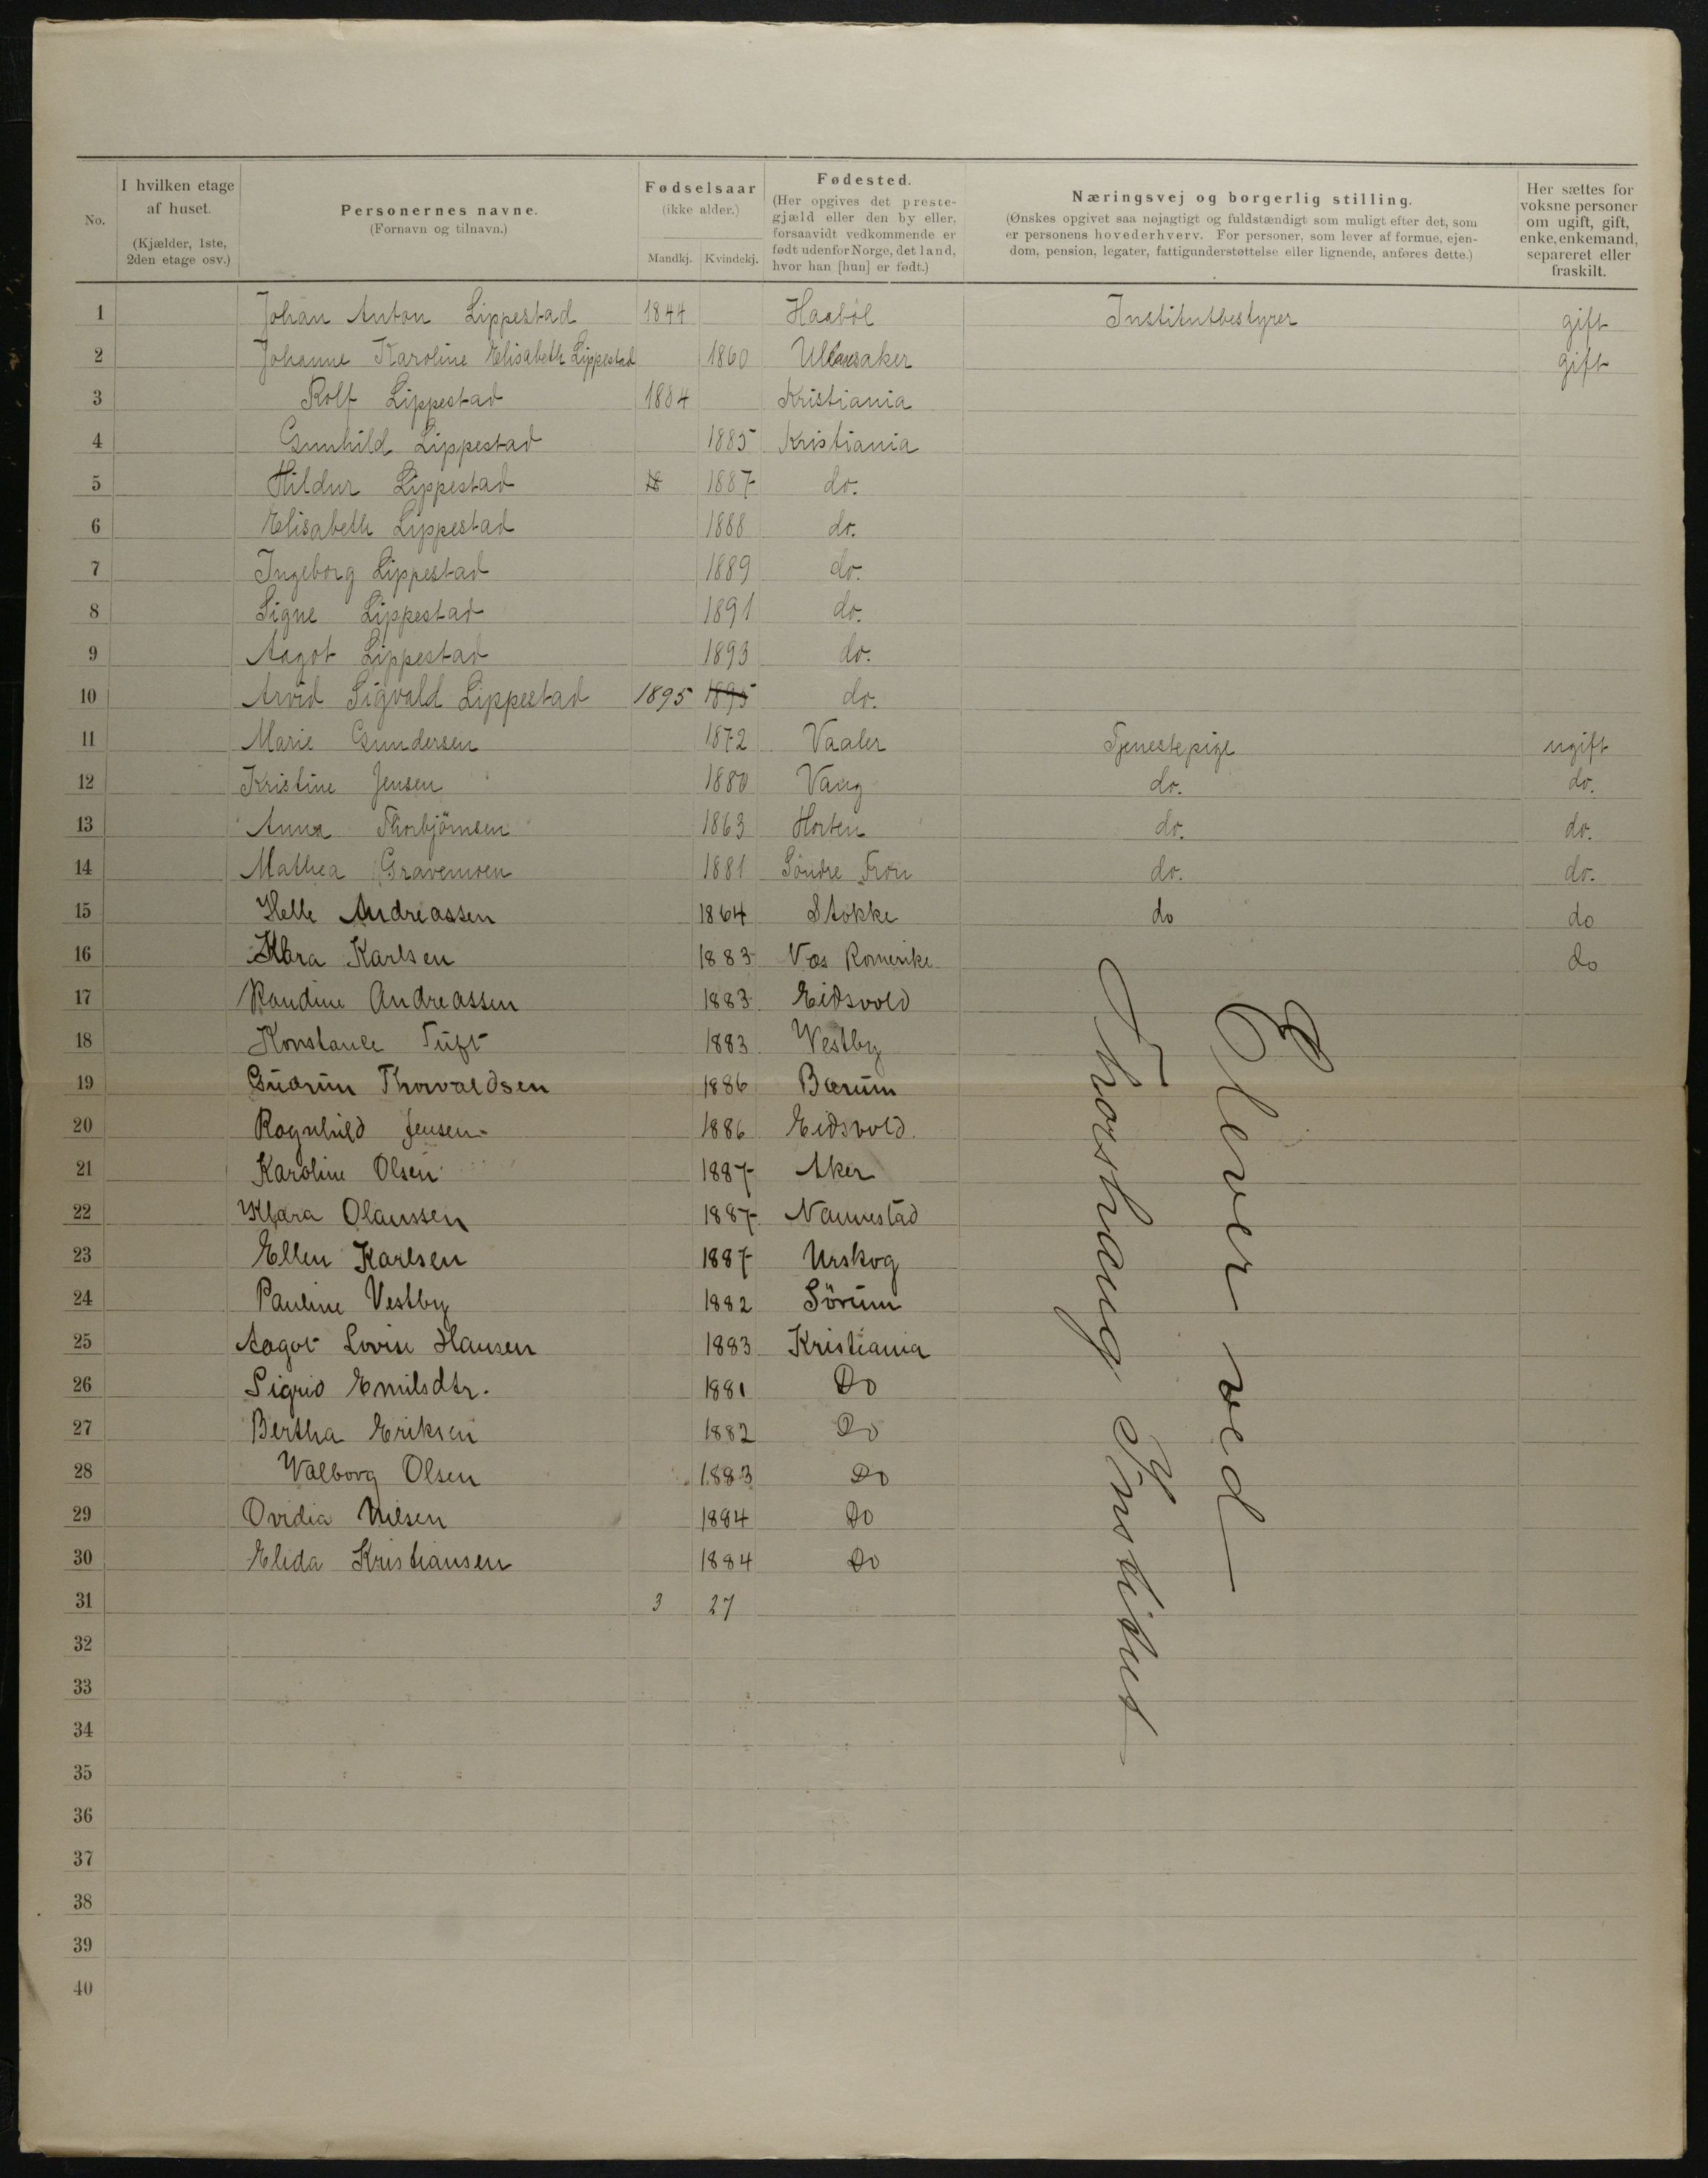 No.
I hvilken etage af huset.
(Kjælder, 1ste, 2den etage osv.)
Personernes navne.
(Fornavn og tilnavn.)
Fødselsaar
(ikke alder.)
Mandkj. Kvindekj.
Fødested.
(Her opgives det preste-
gjæld eller den by eller,
forsaavidt vedkommende er
født udenfor Norge, det land,
hvor han [hun] er født.)
Næringsvej og borgerlig stilling.
(Ønskes opgivet saa nøjagtigt og fuldstændigt som muligt efter det, som
er personens hovederhverv. For personer, som lever af formue, ejen-
dom, pension, legater, fattigunderstøttelse eller lignende, anføres dette.)
Her sættes for
voksne personer
om ugift, gift,
enke, enkemand,
separeret eller
fraskilt.
1 Johan Anton Lippestad 1844 Haabøl Institutbestyrer gift
2 Johanne Karoline Elisabeth Lippestad 1860 Ullensaker gift
3 Rolf Lippestad 1884 Kristiania
4 Gunhild Lippestad 1885 Kristiania
5 Hildur Lippestad 18 1887 do.
6 Elisabeth Lippestad 1888 do.
7 Ingeborg Lippestad 1889 do.
8 Signe Lippestad 1891 do.
9 Aagot Lippestad 1893 do.
10 Arvid Sigvald Lippestad 1895 1895 do.
11 Marie Gundersen 1872 Vaaler Tjenestepige ugift
12 Kristine Jensen 1880 Vang do. do.
13 Anna Thorbjörnsen 1863 Horten do. do.
14 Mathea Gravemoen 1881 Söndre Fron do. do.
15 Helle Andreassen 1864 Stokke do do
16 Klara Karlsen 1883 Næs Romerike do
17 Randine Andreassen 1883 Eidsvold
18 Konstance Tuft 1883 Westby
19 Gudrun Thorvaldsen 1886 Bærum
20 Ragnhild Jensen 1886 Eidsvold.
21 Karoline Olsen 1887 Aker
22 Klara Olaussen 1887 Nannestad
23 Ellen Karlsen 1887 Urskog
24 Pauline Vestby 1882 Sörum
25 Aagot Lovise Hansen 1883 Kristiania
26 Sigrid Emilsdtr. 1881 Do
27 Bertha Eriksen 1882 Do
28 Walborg Olsen 1883 Do
29 Ovidia Nilsen 1884 Do
30 Elida Kristiansen 1884 Do
31 3 27
32
33
34
35
36
37
38
39
40
Elever ved
Thorshaug Institut